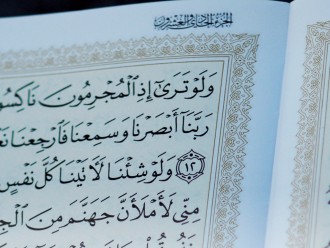 الجزء الحادي والعشرون
وَلَوْ تَرَىٰٓ إِذِ ٱلْمُجْرِمُونَ نَاكِسُو
رَبَّنَآ أَبْصَرْنَا وَسَمِعْنَا فَٱرْجِعْنَا نَعۡ
١٢ وَلَوْ شِئْنَا لَأٓتَيْنَا كُلَّ نَفْسٍ
مِنِّى لَأَمْلَأَنَّ جَهَنَّمَ مِنَ ٱلْجِ